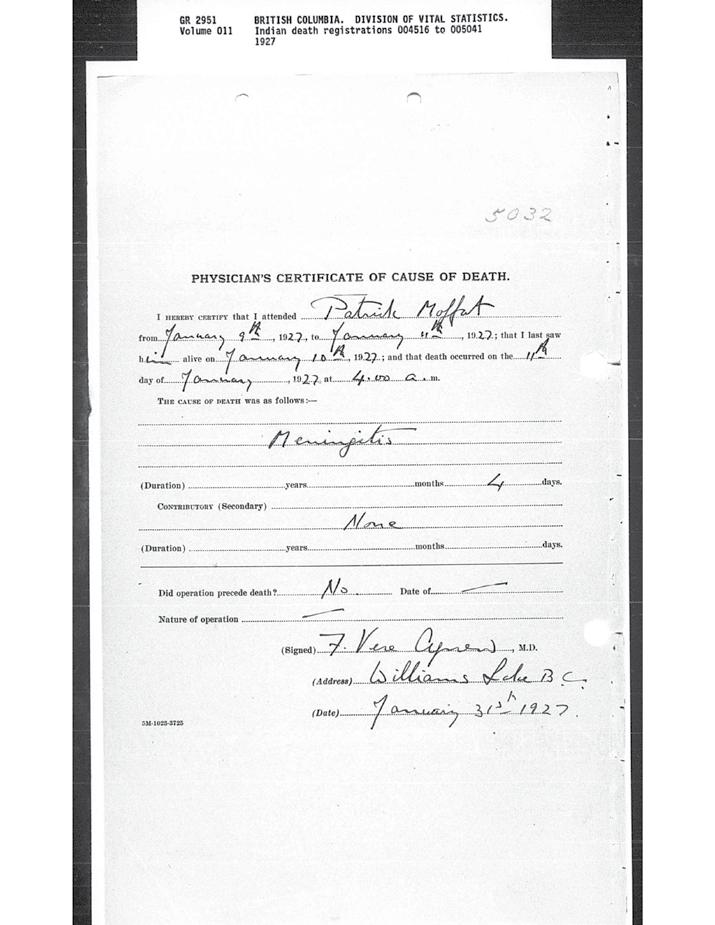 GR 2951 BRITISH COLUMBIA. DIVISION OF VITAL STATISTICS.
Volume 011 Indian death registrations 004516 to 005041
1927
5032
PHYSICIAN'S CERTIFICATE OF CAUSE OF DEATH.
I HEREBY CERTIFY that I attended Patrick Moffat
from January 9th, 1927, to January 11th, 1927; that I last saw
him alive on January 10th, 1927; and that death occurred on the 11th
day of January, 1927 at 4.00 a.m.
THE CAUSE OF DEATH was as follows:—
Meningitis
(Duration) years months 4 days.
CONTRIBUTORY (Secondary)
None
(Duration) years months days.
Did operation precede death? No. Date of —
Nature of operation —
(Signed) F. Vere Agnew, M.D.
(Address) Williams Lake B.C.
(Date) January 31st 1927.
5M-1025-3725